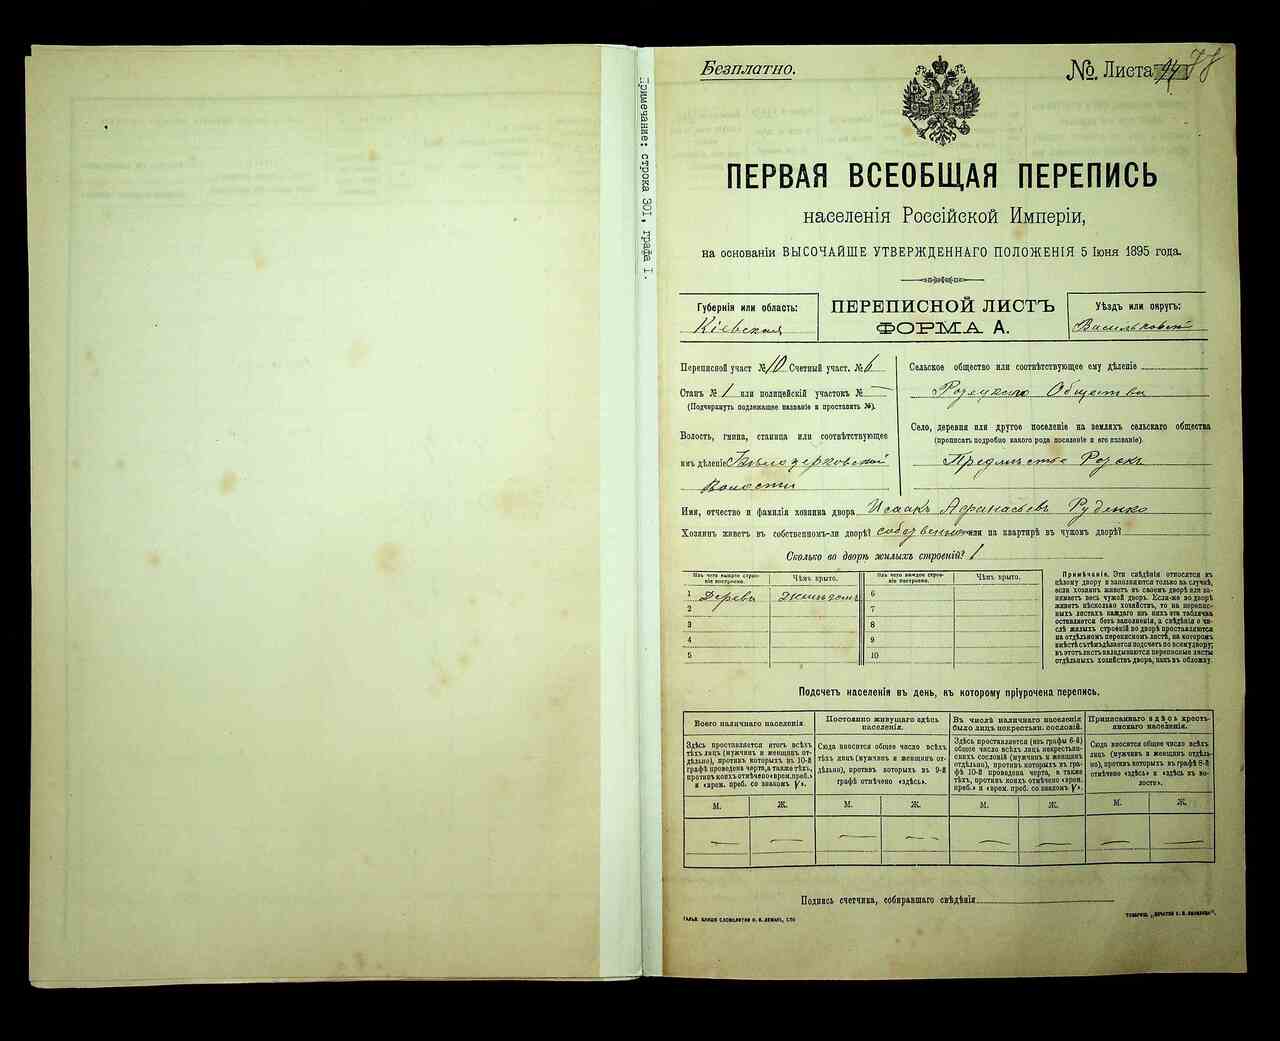 Примечание: строка 301, графа I.
Безплатно.
№ Листа 78
ПЕРВАЯ ВСЕОБЩАЯ ПЕРЕПИСЬ
населенія Россійской Имперіи,
на основаніи ВЫСОЧАЙШЕ УТВЕРЖДЕННАГО ПОЛОЖЕНІЯ 5 Іюня 1895 года.
Губернія или область:
Кіевская
ПЕРЕПИСНОЙ ЛИСТЪ
ФОРМА А.
Уѣздъ или округъ:
Васильковскій
Переписной участ № 10 Счетный участ. № 6
Станъ № 1 или полицейскій участокъ № —
(Подчеркнуть подлежащее названіе и проставить №).
Волость, гмина, станица или соотвѣтствующее
имъ дѣленіе Бѣлоцерковской
Волости
Сельское общество или соотвѣтствующее ему дѣленіе
Общества
Село, деревня или другое поселеніе на земляхъ сельскаго общества
(прописать подробно какого рода поселеніе и его названіе).
Предмѣстье
Имя, отчество и фамилія хозяина двора Исаакъ Афанасьевъ Руденко
Хозяинъ живетъ въ собственномъ-ли дворѣ? или на квартирѣ въ чужомъ дворѣ?
Сколько во дворѣ жилыхъ строеній? 1
Изъ чего каждое строеніе построено.
Чѣмъ крыто.
Изъ чего каждое строеніе построено.
Чѣмъ крыто.
1 6
2 7
3 8
4 9
5 10
Примѣчаніе. Эти свѣдѣнія относятся къ
цѣлому двору и заполняются только въ случаѣ,
если хозяинъ живетъ въ своемъ дворѣ или за-
нимаетъ весь чужой дворъ. Если-же во дворѣ
живетъ нѣсколько хозяйствъ, то на перепис-
ныхъ листахъ каждаго изъ нихъ эта табличка
оставляется безъ заполненія, а свѣдѣнія о чи-
слѣ жилыхъ строеній во дворѣ проставляются
на отдѣльномъ переписномъ листѣ, на которомъ
вмѣстѣ съ тѣмъ дѣлается подсчетъ по всему двору;
въ этотъ листъ вкладываются переписные листы
отдѣльныхъ хозяйствъ двора, какъ въ обложку.
Подсчетъ населенія въ день, къ которому пріурочена перепись.
Всего наличнаго населенія
Постоянно живущаго здѣсь
населенія.
Въ числѣ наличнаго населенія
было лицъ некрестьян. сословій.
Приписаннаго здѣсь кресть-
янскаго населенія.
Здѣсь проставляется итогъ всѣхъ
лицъ (мужчинъ и женщинъ от-
дѣльно), противъ которыхъ въ 10-й
графѣ проведена черта, а также тѣхъ,
противъ коихъ отмѣчено «врем. преб.»
и «врем. преб. со знакомъ V».
Сюда вносится общее число всѣхъ
тѣхъ лицъ (мужчинъ и женщинъ от-
дѣльно), противъ которыхъ въ 9-й
графѣ отмѣчено «здѣсь».
Здѣсь проставляется (изъ графы 6-й)
общее число всѣхъ лицъ некрестьян-
скихъ сословій (мужчинъ и женщинъ
отдѣльно), противъ которыхъ въ гра-
фѣ 10-й проведена черта, а также
тѣхъ, противъ коихъ отмѣчено «врем.
преб.» и «врем. преб. со знакомъ V».
Сюда вносится общее число всѣхъ
лицъ (мужчинъ и женщинъ отдѣль-
но), противъ которыхъ въ графѣ 8-й
отмѣчено «здѣсь» и «здѣсь въ во-
лости».
М. Ж. М. Ж. М. Ж. М. Ж.
— — — — — — — —
Подпись счетчика, собиравшаго свѣдѣнія